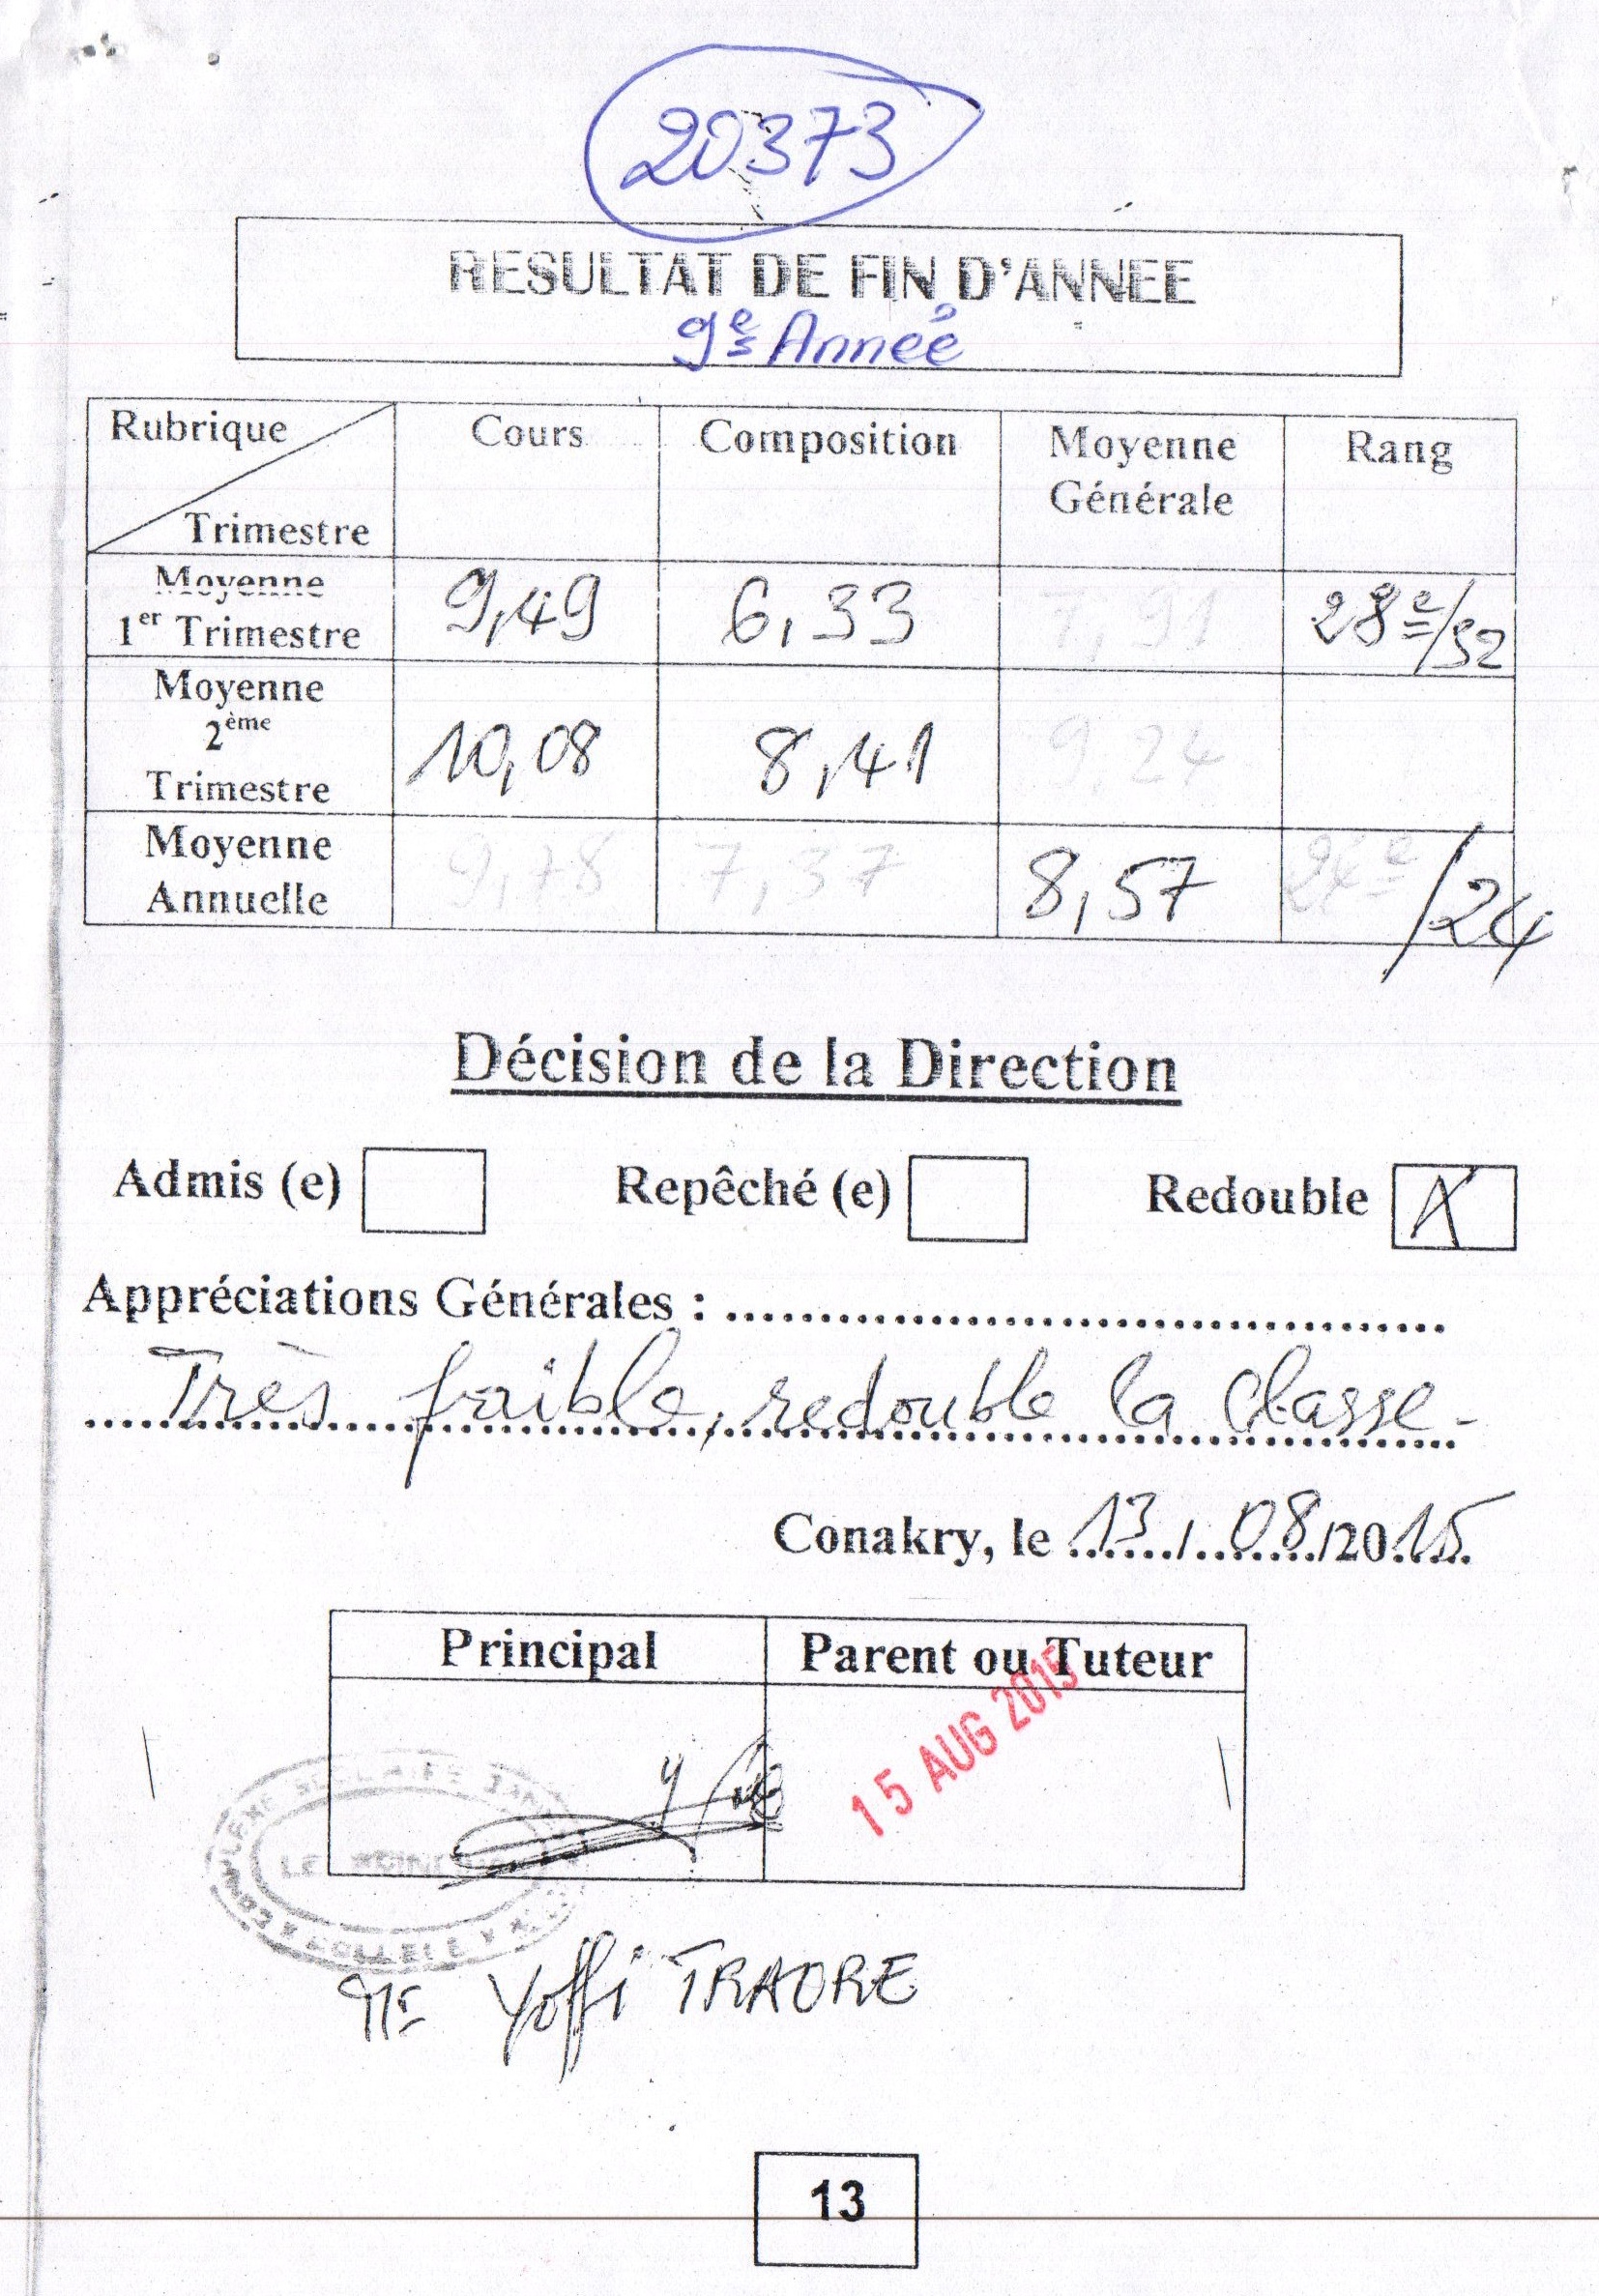 20373
RESULTAT DE FIN D'ANNEE
9e Année
Rubrique
Trimestre
Cours
Composition
Moyenne
Générale
Rang
Moyenne
1er Trimestre
9,49
6,33
7,91
28e/32
Moyenne
2ème
Trimestre
10,08
8,41
9,24
Moyenne
Annuelle
9,78
7,37
8,57
24e/24
Décision de la Direction
Admis (e)
Repêché (e)
Redouble X
Appréciations Générales :
Très faible, redouble la classe -
Conakry, le 13/08/2015
Principal
Parent ou Tuteur
15 AUG 2015
Mr Yoffi TRAORE
13